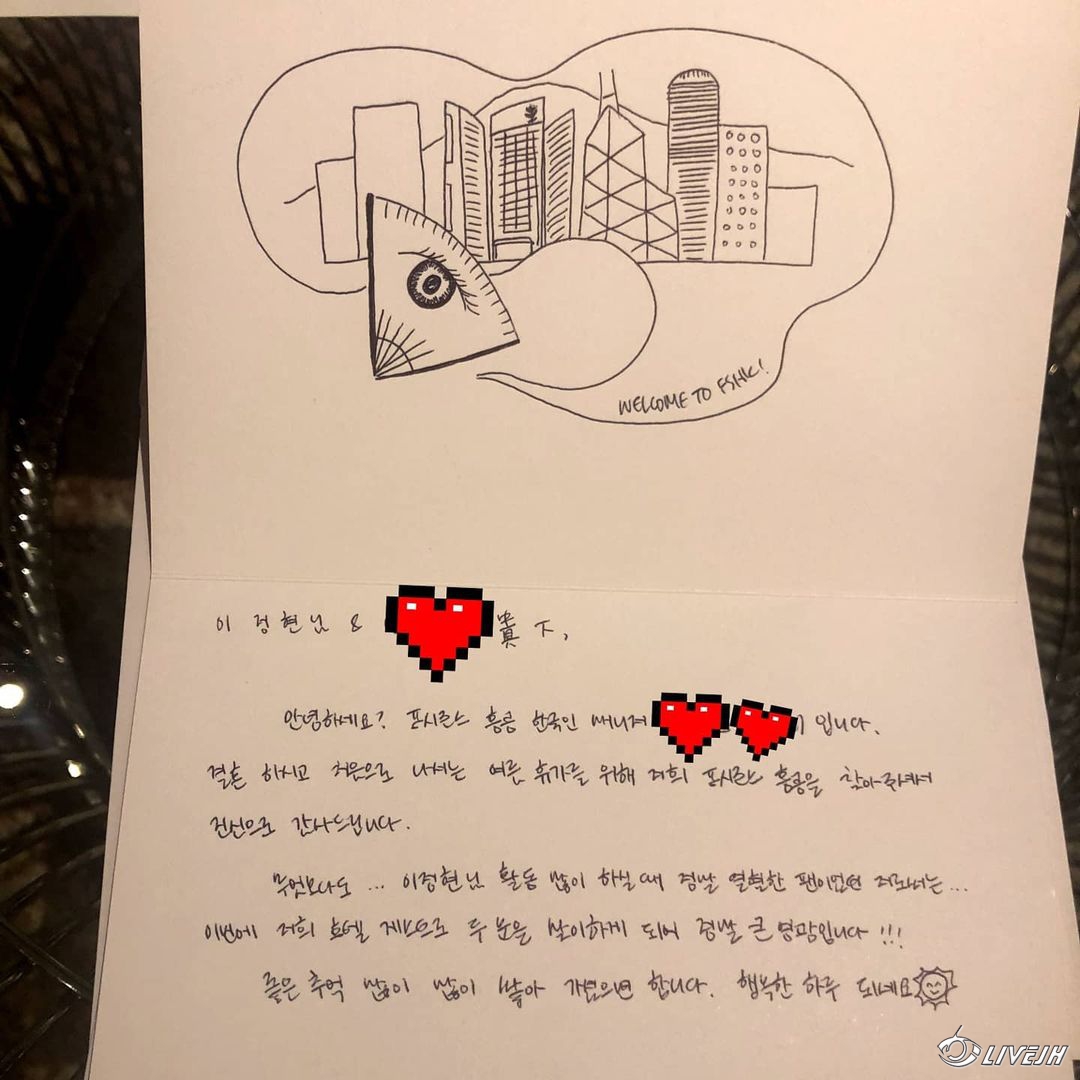 WELCOME TO FSHK!
이 정현님 & 貴下,
안녕하세요? 포시즌스 홍콩 한국인 매니저 입니다.
결혼 하시고 처음으로 나서는 여름 휴가를 위해 저희 포시즌스 홍콩을 찾아주셔서
진심으로 감사드립니다.
무엇보다도 ... 이정현님 활동 많이 하실 때 정말 열혈한 팬이었던 저로서는 ...
이번에 저희 호텔 게스트로 두 분을 맞이하게 되어 정말 큰 영광입니다 !!!
좋은 추억 많이 많이 쌓아 가셨으면 합니다. 행복한 하루 되세요
LIVEJH